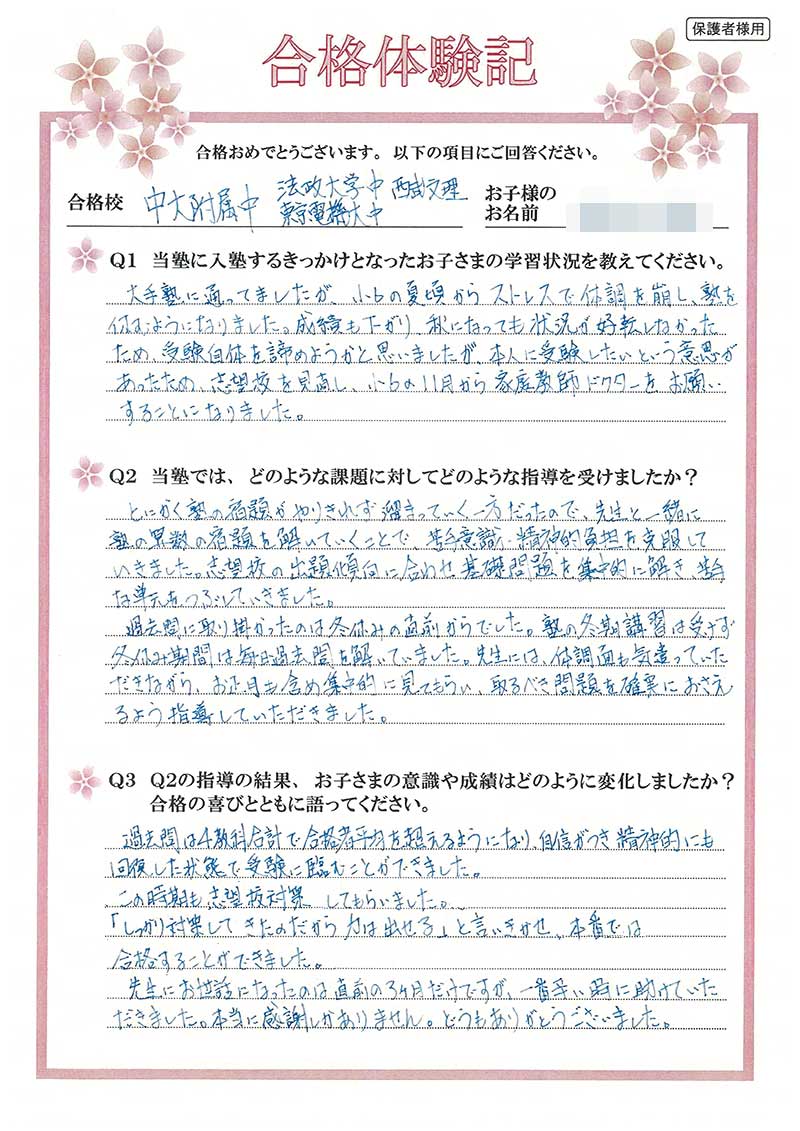 保護者様用
合格体験記
合格おめでとうございます。以下の項目にご回答ください。
合格校 中大附属中 法政大学中 西武文理
東京電機大中
お子様の
お名前
Q1 当塾に入塾するきっかけとなったお子さまの学習状況を教えてください。
大手塾に通ってましたが、小6の夏頃からストレスで体調を崩し、塾を
休むようになりました。成績も下がり、秋になっても状況が好転しなかった
ため、受験自体を諦めようかと思いましたが、本人に受験したいという意思が
あったため、志望校を見直し、小6の11月から家庭教師ドクターをお願い
することになりました。
Q2 当塾では、どのような課題に対してどのような指導を受けましたか？
とにかく塾の宿題がやりきれず溜まっていく一方だったので、先生と一緒に
塾の算数の宿題を解いていくことで、苦手意識・精神的負担を克服して
いきました。志望校の出題傾向に合わせ基礎問題を集中的に解き、苦手
な単元をつぶしていきました。
過去問に取り掛かったのは冬休みの直前からでした。塾の冬期講習は受けず
冬休み期間は毎日過去問を解いていました。先生には、体調面も気遣っていた
だきながら、お正月も含め集中的に見てもらい、取るべき問題を確実におさえ
るよう指導していただきました。
Q3 Q2の指導の結果、お子さまの意識や成績はどのように変化しましたか？
合格の喜びとともに語ってください。
過去問は4教科合計で合格者平均を超えるようになり、自信がつき精神的にも
回復した状態で受験に臨むことができました。
この時期も志望校対策してもらいました。
「しっかり対策してきたのだから力は出せる」と言いきかせ、本番では
合格することができました。
先生にお世話になったのは直前の3ヶ月だけですが、一番辛い時に助けていた
だきました。本当に感謝しかありません。どうもありがとうございました。